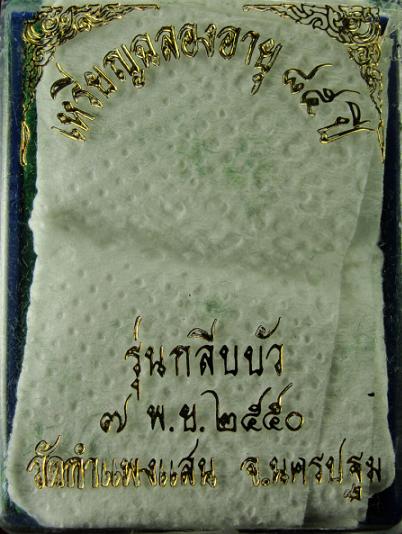 เหรียญฉลองอายุ ๘๕ ปี
รุ่นกลีบบัว
๗ พ.ย. ๒๕๕๐
วัดกำแพงแสน จ.นครปฐม